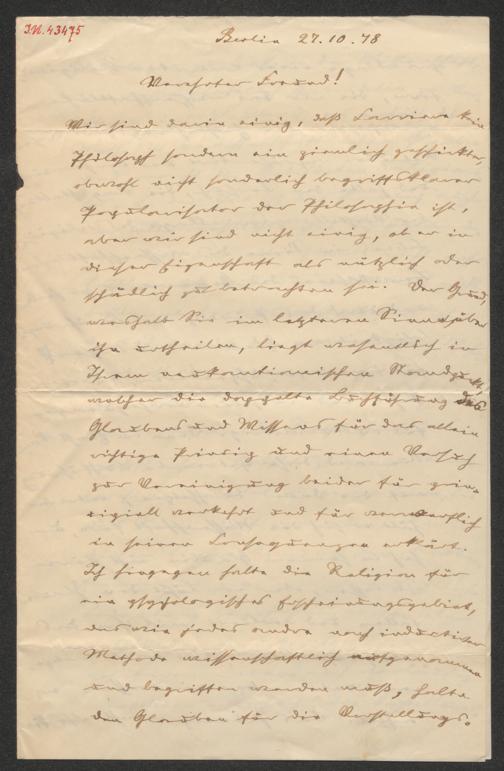 J.N. 43475
Berlin 27.10.78
Verehrter Freund!
Wir sind darin einig, daß Carriere kein
Philosoph sondern ein ziemlich geschickter,
obwohl nicht sonderlich begriffsklarer
Popularisator der Philosophie ist,
aber wir sind nicht einig, ob er in
dieser Eigenschaft als nützlich oder
schädlich zu betrachten sei. Der Grund,
weshalb Sie im letzteren Sinne über
ihn urtheilen, liegt wesentlich in
Ihrem neukantianischen Standpunkt,
welcher die doppelte Buchführung des
Glaubens und Wissens für das allein
richtige Princip und einen Versuch
zur Vereinigung beider für prin-
cipiell verkehrt und für verwerflich
in seinen Consequenzen erklärt.
Ich hingegen halte die Religion für
ein psychologisches Erscheinungsgebiet,
das wie jedes andre nach inductiver
Methode wissenschaftlich aufgenommen
und begriffen werden muß, halte
den Glauben für die Vorstellungs-